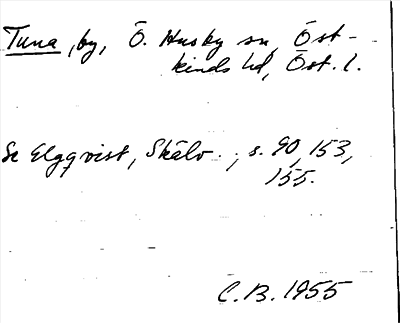 Tuna, by, Ö. Husby sn, Öst-
kinds hd, Öst. l.
Se Elgqvist, Skälv., s. 90, 153,
155.
C.B. 1955